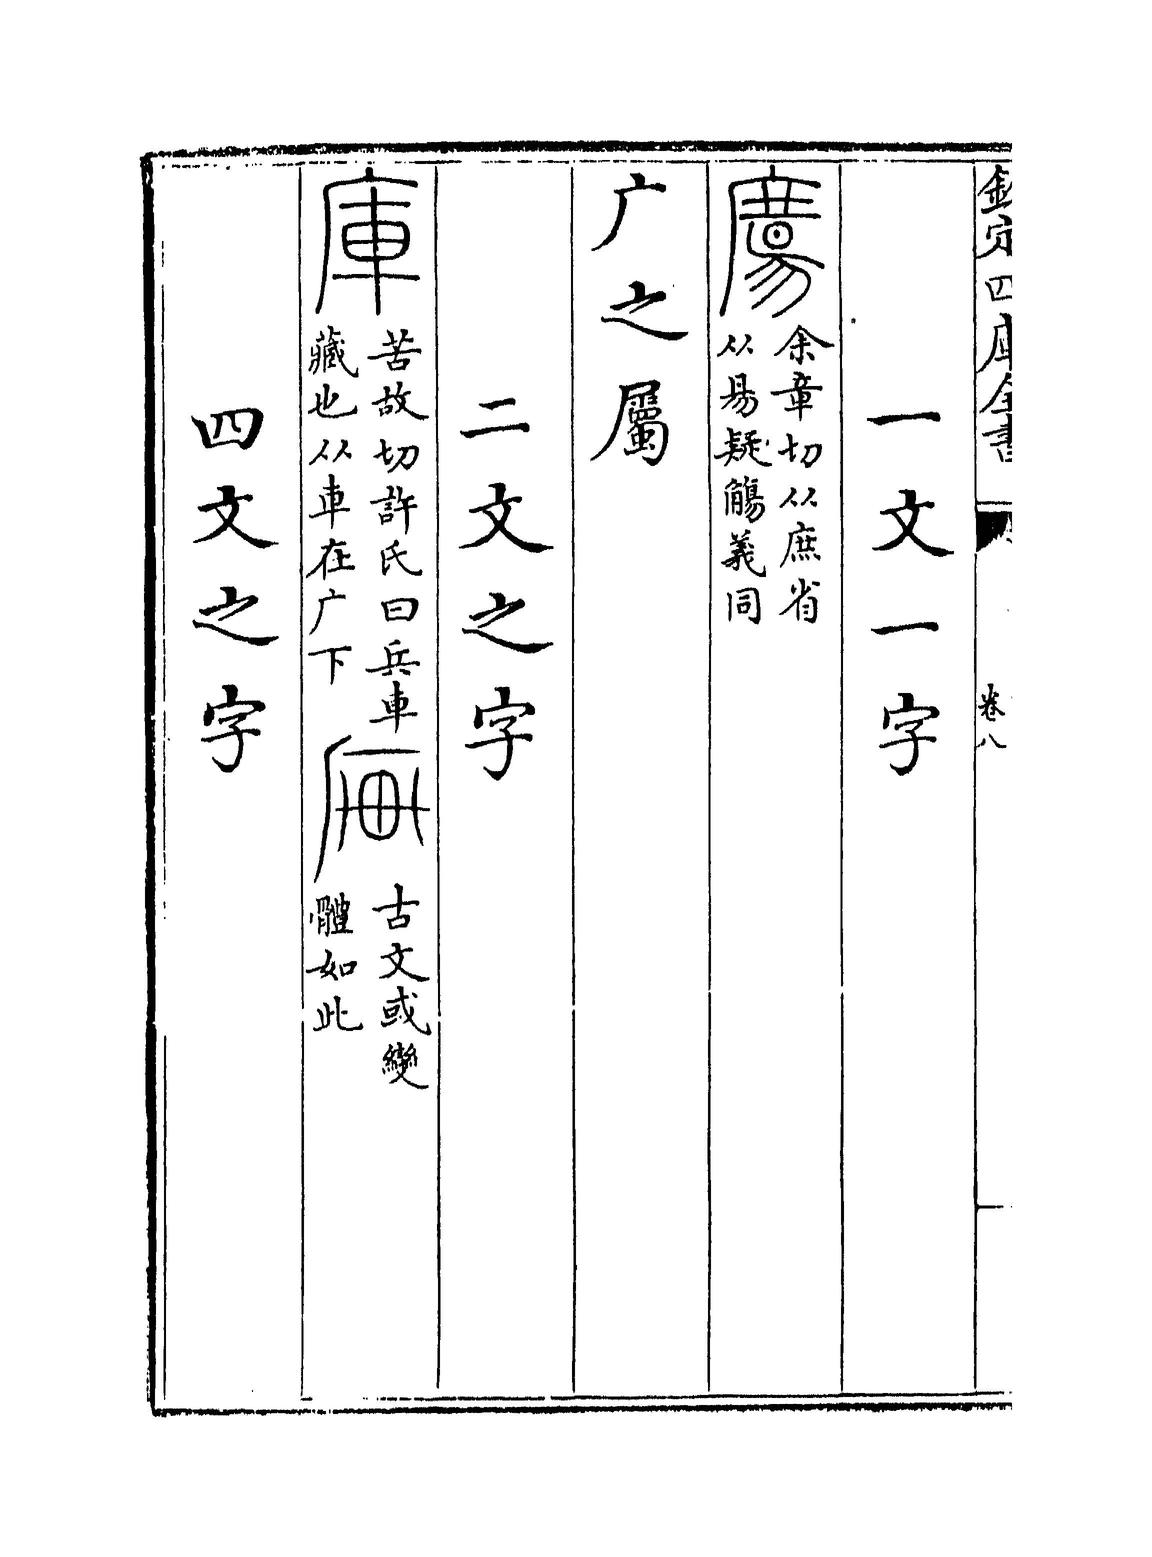 欽定四庫全書 卷八
一文一字
余章切从庶省
从昜疑觴義同
广之屬
二文之字
庫
苦故切許氏曰兵車
藏也从車在广下
古文或變
體如此
四文之字